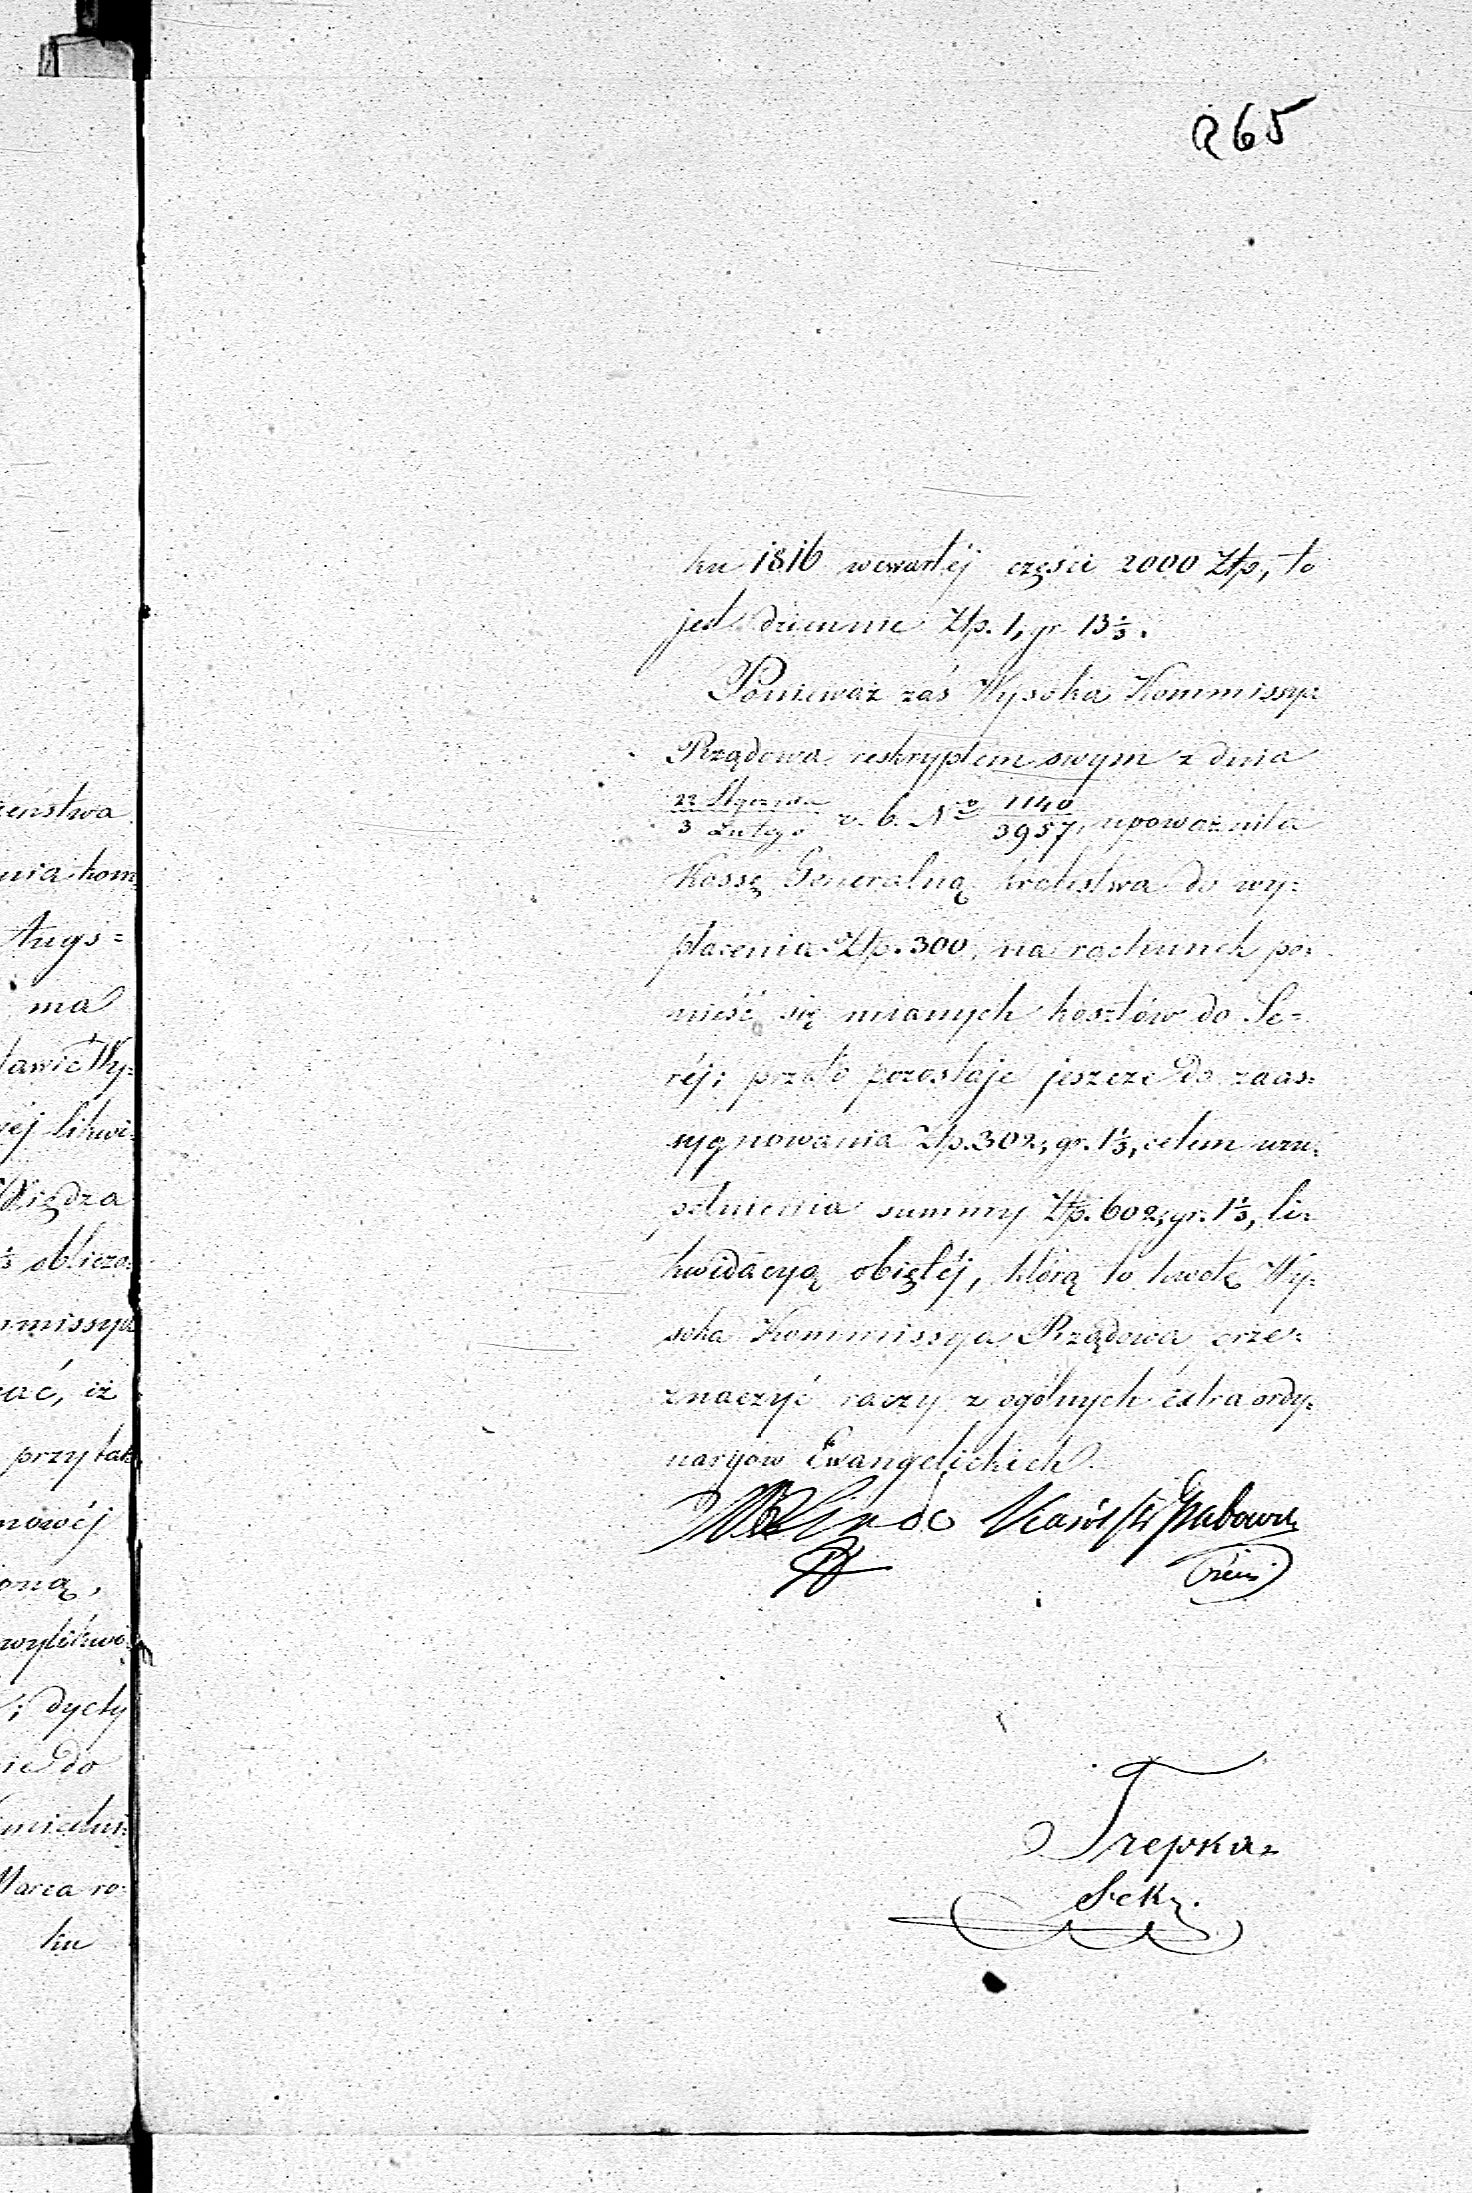 265
ku 1816 w czwartéj części 2000 Złp., to
jest dziennie Złp. 1, gr 13⅓.
Ponieważ zaś Wysoka Kommissya
Rządowa reskryptem swym z dnia
22 Stycznia / 3 Lutego r. b. No 1140/3957, upoważniła
Kassę Generalną królestwa do wy=
płacenia Złp. 300, na rachunek po=
nieść się mianych kosztów do Se=
réj; przeto pozostaje jeszcze do zaas=
sygnowania Złp. 302, gr. 1⅓, celem uzu=
pełnienia summy Złp. 602, gr. 1⅓, li=
kwidacyą objętéj, którą to kwotę Wy=
soka Kommissya Rządowa prze=
znaczyć raczy z ogólnych extraordy=
naryów Ewangelickich.
Trepka
Sekr.
ma
Augs=
Księdza
ać, iż
przytak
; dyety
Marca ro=
ku